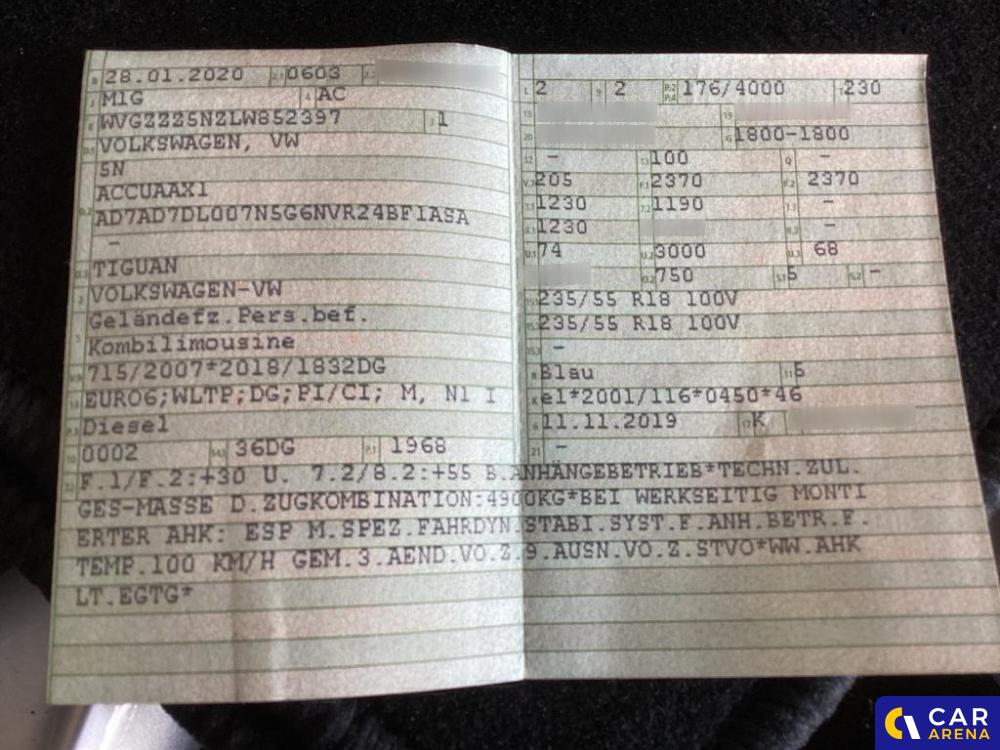 B 28.01.2020 2.1 0603 2.2
J M1G 4 AC
E WVGZZZ5NZLW852397 3 1
D.1 VOLKSWAGEN, VW
5N
ACCUAAX1
D.2 AD7AD7DL007N5G6NVR24BF1ASA
–
D.3 TIGUAN
2 VOLKSWAGEN-VW
Geländefz.Pers.bef.
5 Kombilimousine
V.9 715/2007*2018/1832DG
14 EURO6;WLTP;DG;PI/CI; M, N1 I
P.3 Diesel
10 0002 14.1 36DG P.1 1968
L 2 9 2 P.2 P.4 176/4000 T 230
18 19
20 G 1800-1800
12 – 13 100 Q –
V.7 205 F.1 2370 F.2 2370
7.1 1230 7.2 1190 7.3 –
8.1 1230 8.3 –
U.1 74 U.2 3000 U.3 68
O.2 750 S.1 5 S.2 –
15.1 235/55 R18 100V
15.2 235/55 R18 100V
15.3 –
R Blau 11 5
K e1*2001/116*0450*46
6 11.11.2019 17 K
21 –
22 F.1/F.2:+30 U. 7.2/8.2:+55 B.ANHÄNGEBETRIEB*TECHN.ZUL.
GES-MASSE D.ZUGKOMBINATION:4900KG*BEI WERKSEITIG MONTI
ERTER AHK: ESP M.SPEZ.FAHRDYN.STABI.SYST.F.ANH.BETR.F.
TEMP.100 KM/H GEM.3.AEND.VO.Z.9.AUSN.VO.Z.STVO*WW.AHK
LT.EGTG*
CAR
ARENA